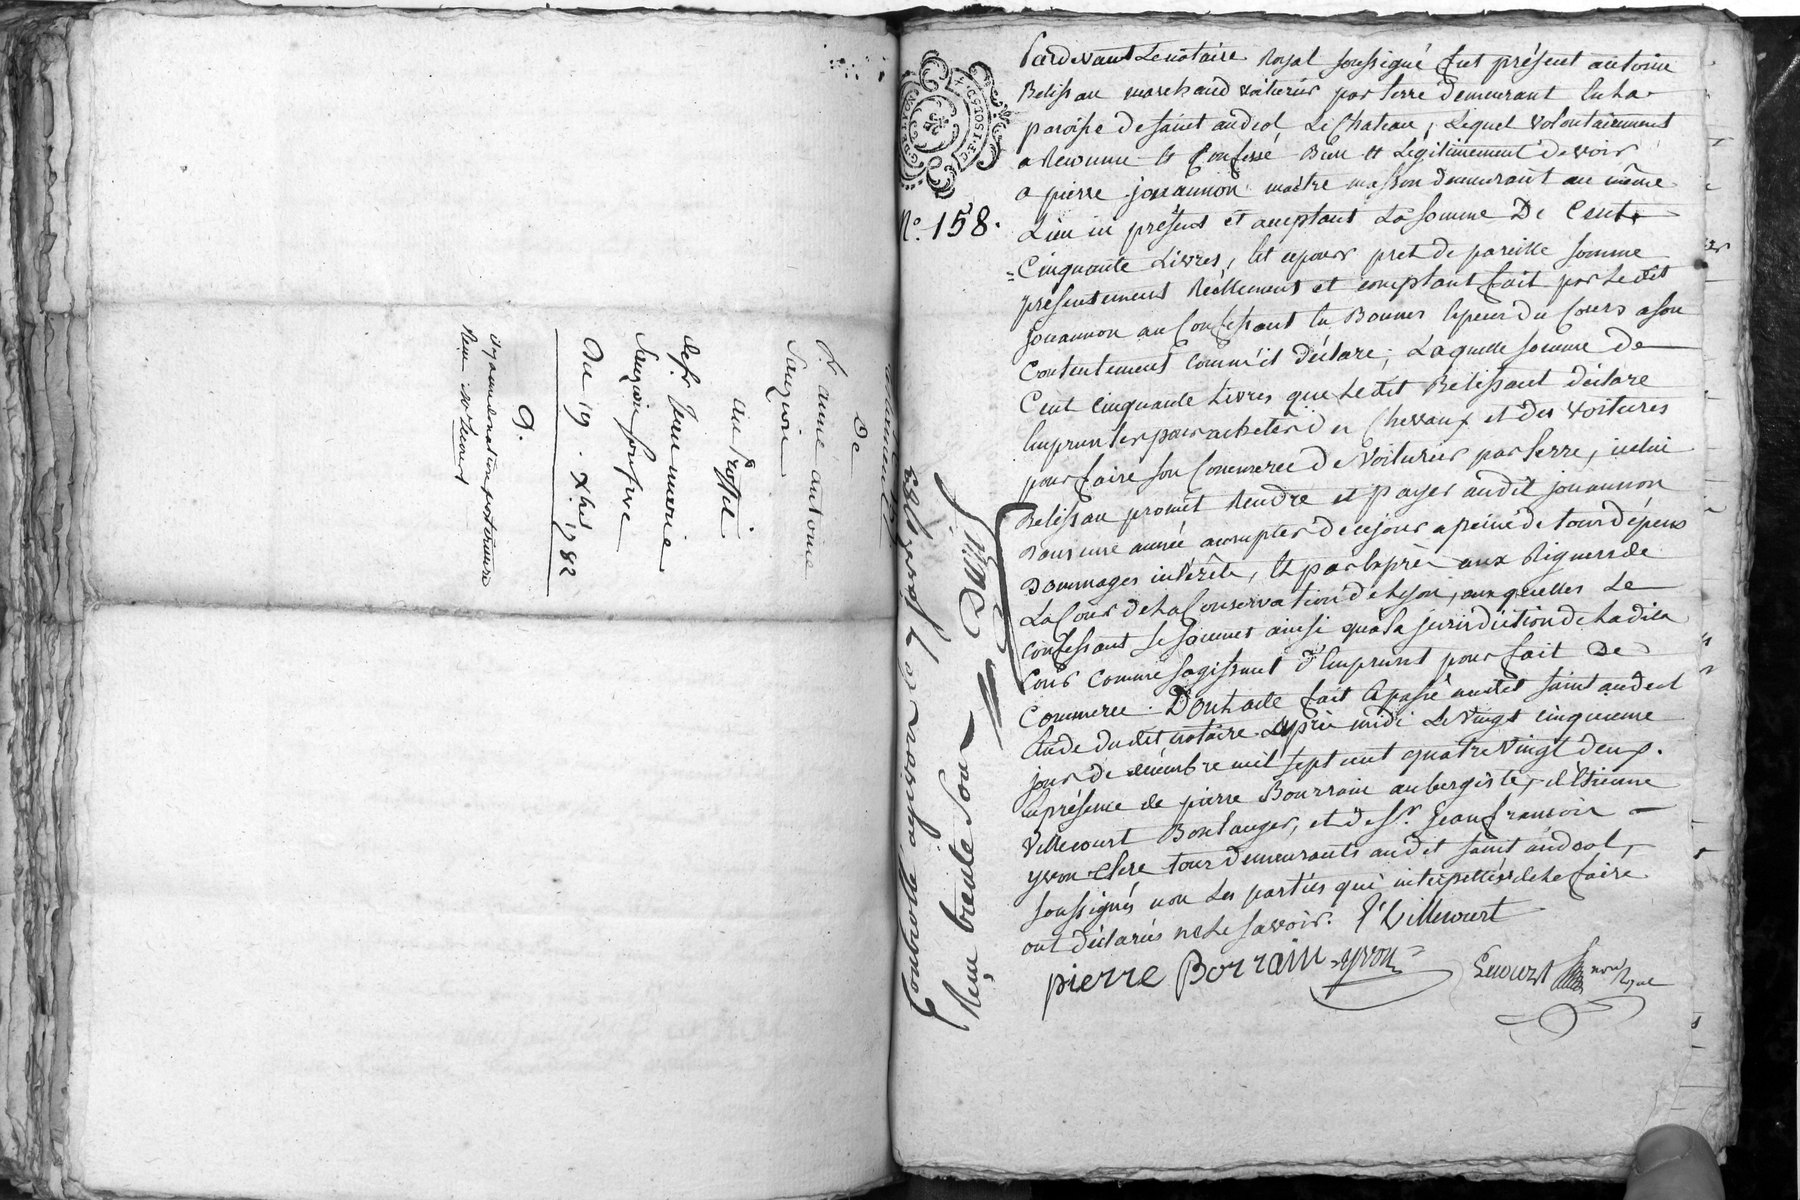 testament
de
Sr. anne antoine
Sauzion
au Proffit
de Sr. Jean marie
Sauzion son frere
Du 19. Xbre 1782
No. 158.
Pardevant Le notaire Royal soussigné fut présent antoine
Belissau marchand voiturier par terre demeurant en La
paroisse de saint andeol Le Chateau, Lequel volontairement
a Reconnu et Confessé Bien et Légitimement devoir
a pierre jouannon maitre masson demeurant au même
Lieu ici présent et aceptant La somme De Cent
Cinquante Livres, et ce pour pret de pareille somme
présentement Réellement et comptant fait par Le dit
jouannon au Confessant en Bonnes Espeses du Cours a son
Contentement comme il déclare; Laquelle somme De
Cent Cinquante Livres que Le dit Belissaut déclare
Emprunter pour acheter des Chevaux et des voitures
pour faire son Commerce De voiturier par terre, icelui
Belissau promet Rendre et payer audit jouannon
Dans une année a compter de ce jour a peine de tous dépens
Dommages intérêts, Et par exprès aux Rigueurs de
La Cour de La Conservation de Lyon, aux quelles Le
confessant se soumet ainsi qu'a La jurisdiction de La dite
Cour comme s'agissant d'Emprunt pour fait De
Commerce. Dont acte fait et passé audit saint andeol
Etude dudit notaire Après midi Le vingt cinquieme
jour de decembre mil sept cent quatre vingt deux.
En présence de pierre Bourrain aubergiste, d'Etienne
Villecourt Boulanger, et de sr. Jean francois
yvon Clerc tous demeurants audit saint andeol,
soussignés non Les parties qui interpellées de Le faire
ont déclarés ne Le savoir. E Villecourt
pierre Borrain yvon Lecourt not Royal